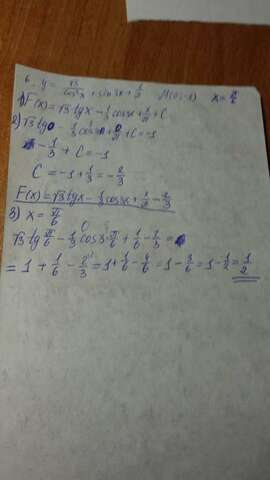 6. y = √3/cos²x + sin3x + 1/2 M(0;-1) x = π/6
1) F(x) = √3 tgx - 1/3 cos3x + x/2 + C
2) √3 tg0 - 1/3 cos0 + 0/2 + C = -1
- 1/3 + C = -1
C = -1 + 1/3 = - 2/3
F(x) = √3 tgx - 1/3 cos3x + x/2 - 2/3
3) x = π/6
√3 tg π/6 - 1/3 cos3·π/6 + 1/6 - 2/3 =
= 1 + 1/6 - 2/3 = 1 + 1/6 - 4/6 = 1 - 3/6 = 1 - 1/2 = 1/2